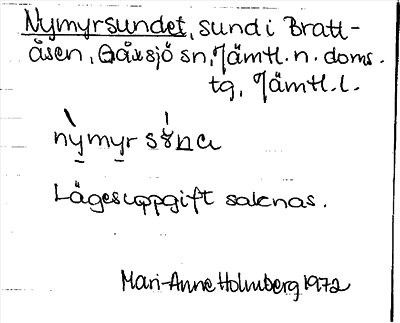 Nymyrsundet, sund i Bratt-
åsen, Gåxsjö sn, Jämtl. n. doms.
tg, Jämtl. l.
Lägesuppgift saknas.
Mari-Anne Holmberg 1972